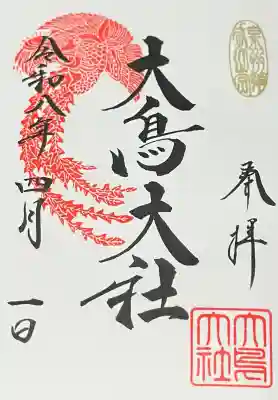 奉拝
大鳥大社
令和八年
四月
一日
大鳥大社